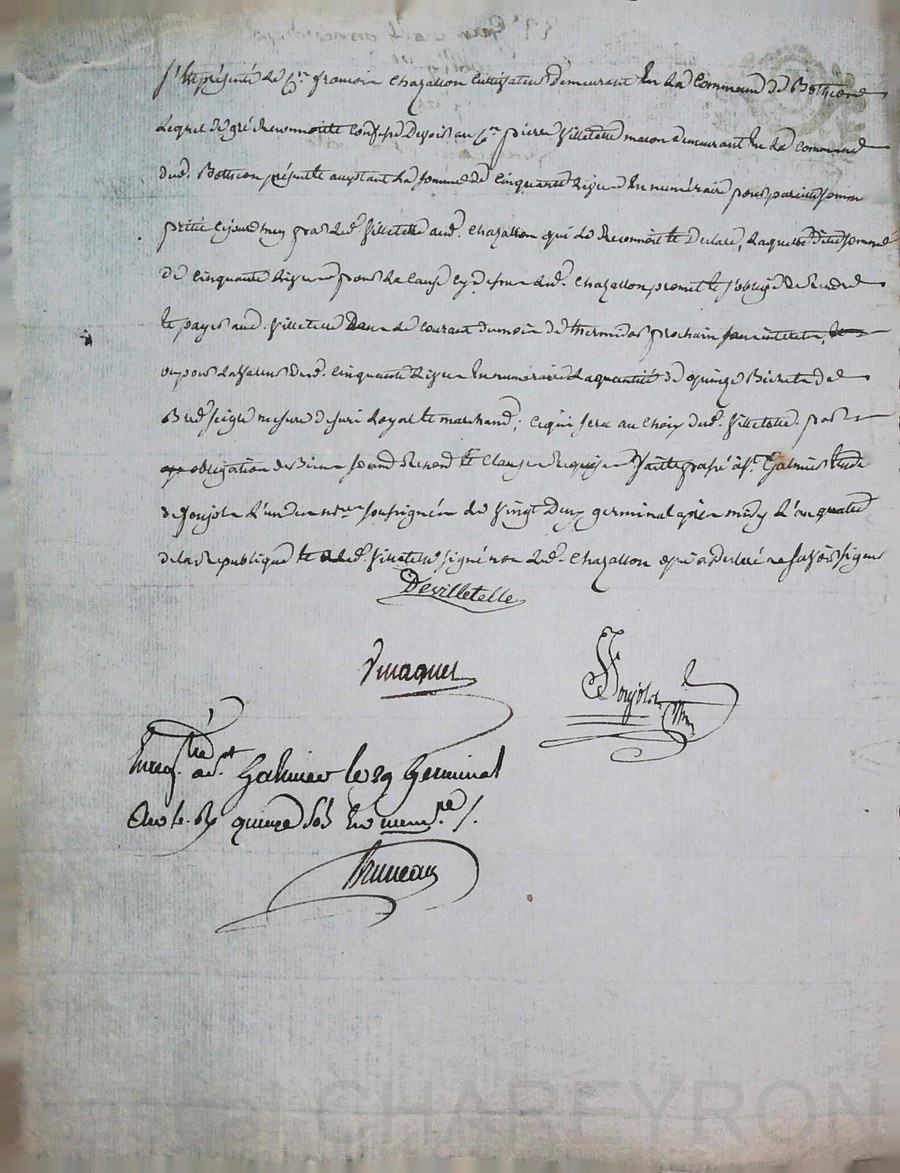 S'est présenté le Cn. francoin Chazallon Cultivateur demeurant En La Commune de Bothéon
Lequel de gré à reconnoitte Confesse devoir au Cn. pierre Villetelle macon demeurant En La Commune
dud. Botheon présent et acceptant La Somme de Cinquante Livres En numéraire pour pareille Somme
pretté Cejourdhuy par Led. Villetelle aud. Chazallon qui Le Reconnoit et Declare, Laquelle ditte Somme
de Cinquante Livres pour La Cause Cy dessus Led. Chazallon promet et s'oblige de Rendre
et payer aud. Villetelle dans Le Courant du mois de thermidor prochain
ou pour La Valleur desd. Cinquante Livres En numéraire La quantité de quinze Bichets de
Bled Seigle mesure de Loyal et marchand, Ce qui Sera au Choix dud. Villetelle. par
obligation de Biens Soumis Renond. et Clauses Requises fait et passé à St. Galmier Etude
de foujols L'un des nres. Soussignés Le Vingt Deux germinal après midy L'an quatre
de La Republique et Led. Villetelle Signé non Led. Chazallon qui a Declaré ne Savoir Signer
Devilletelle
foujols
Enregtré. à St. Galmier le 29 Germinal
an 4. R. quinze Sols En num.re /.
Bruneau
CHAREYRON